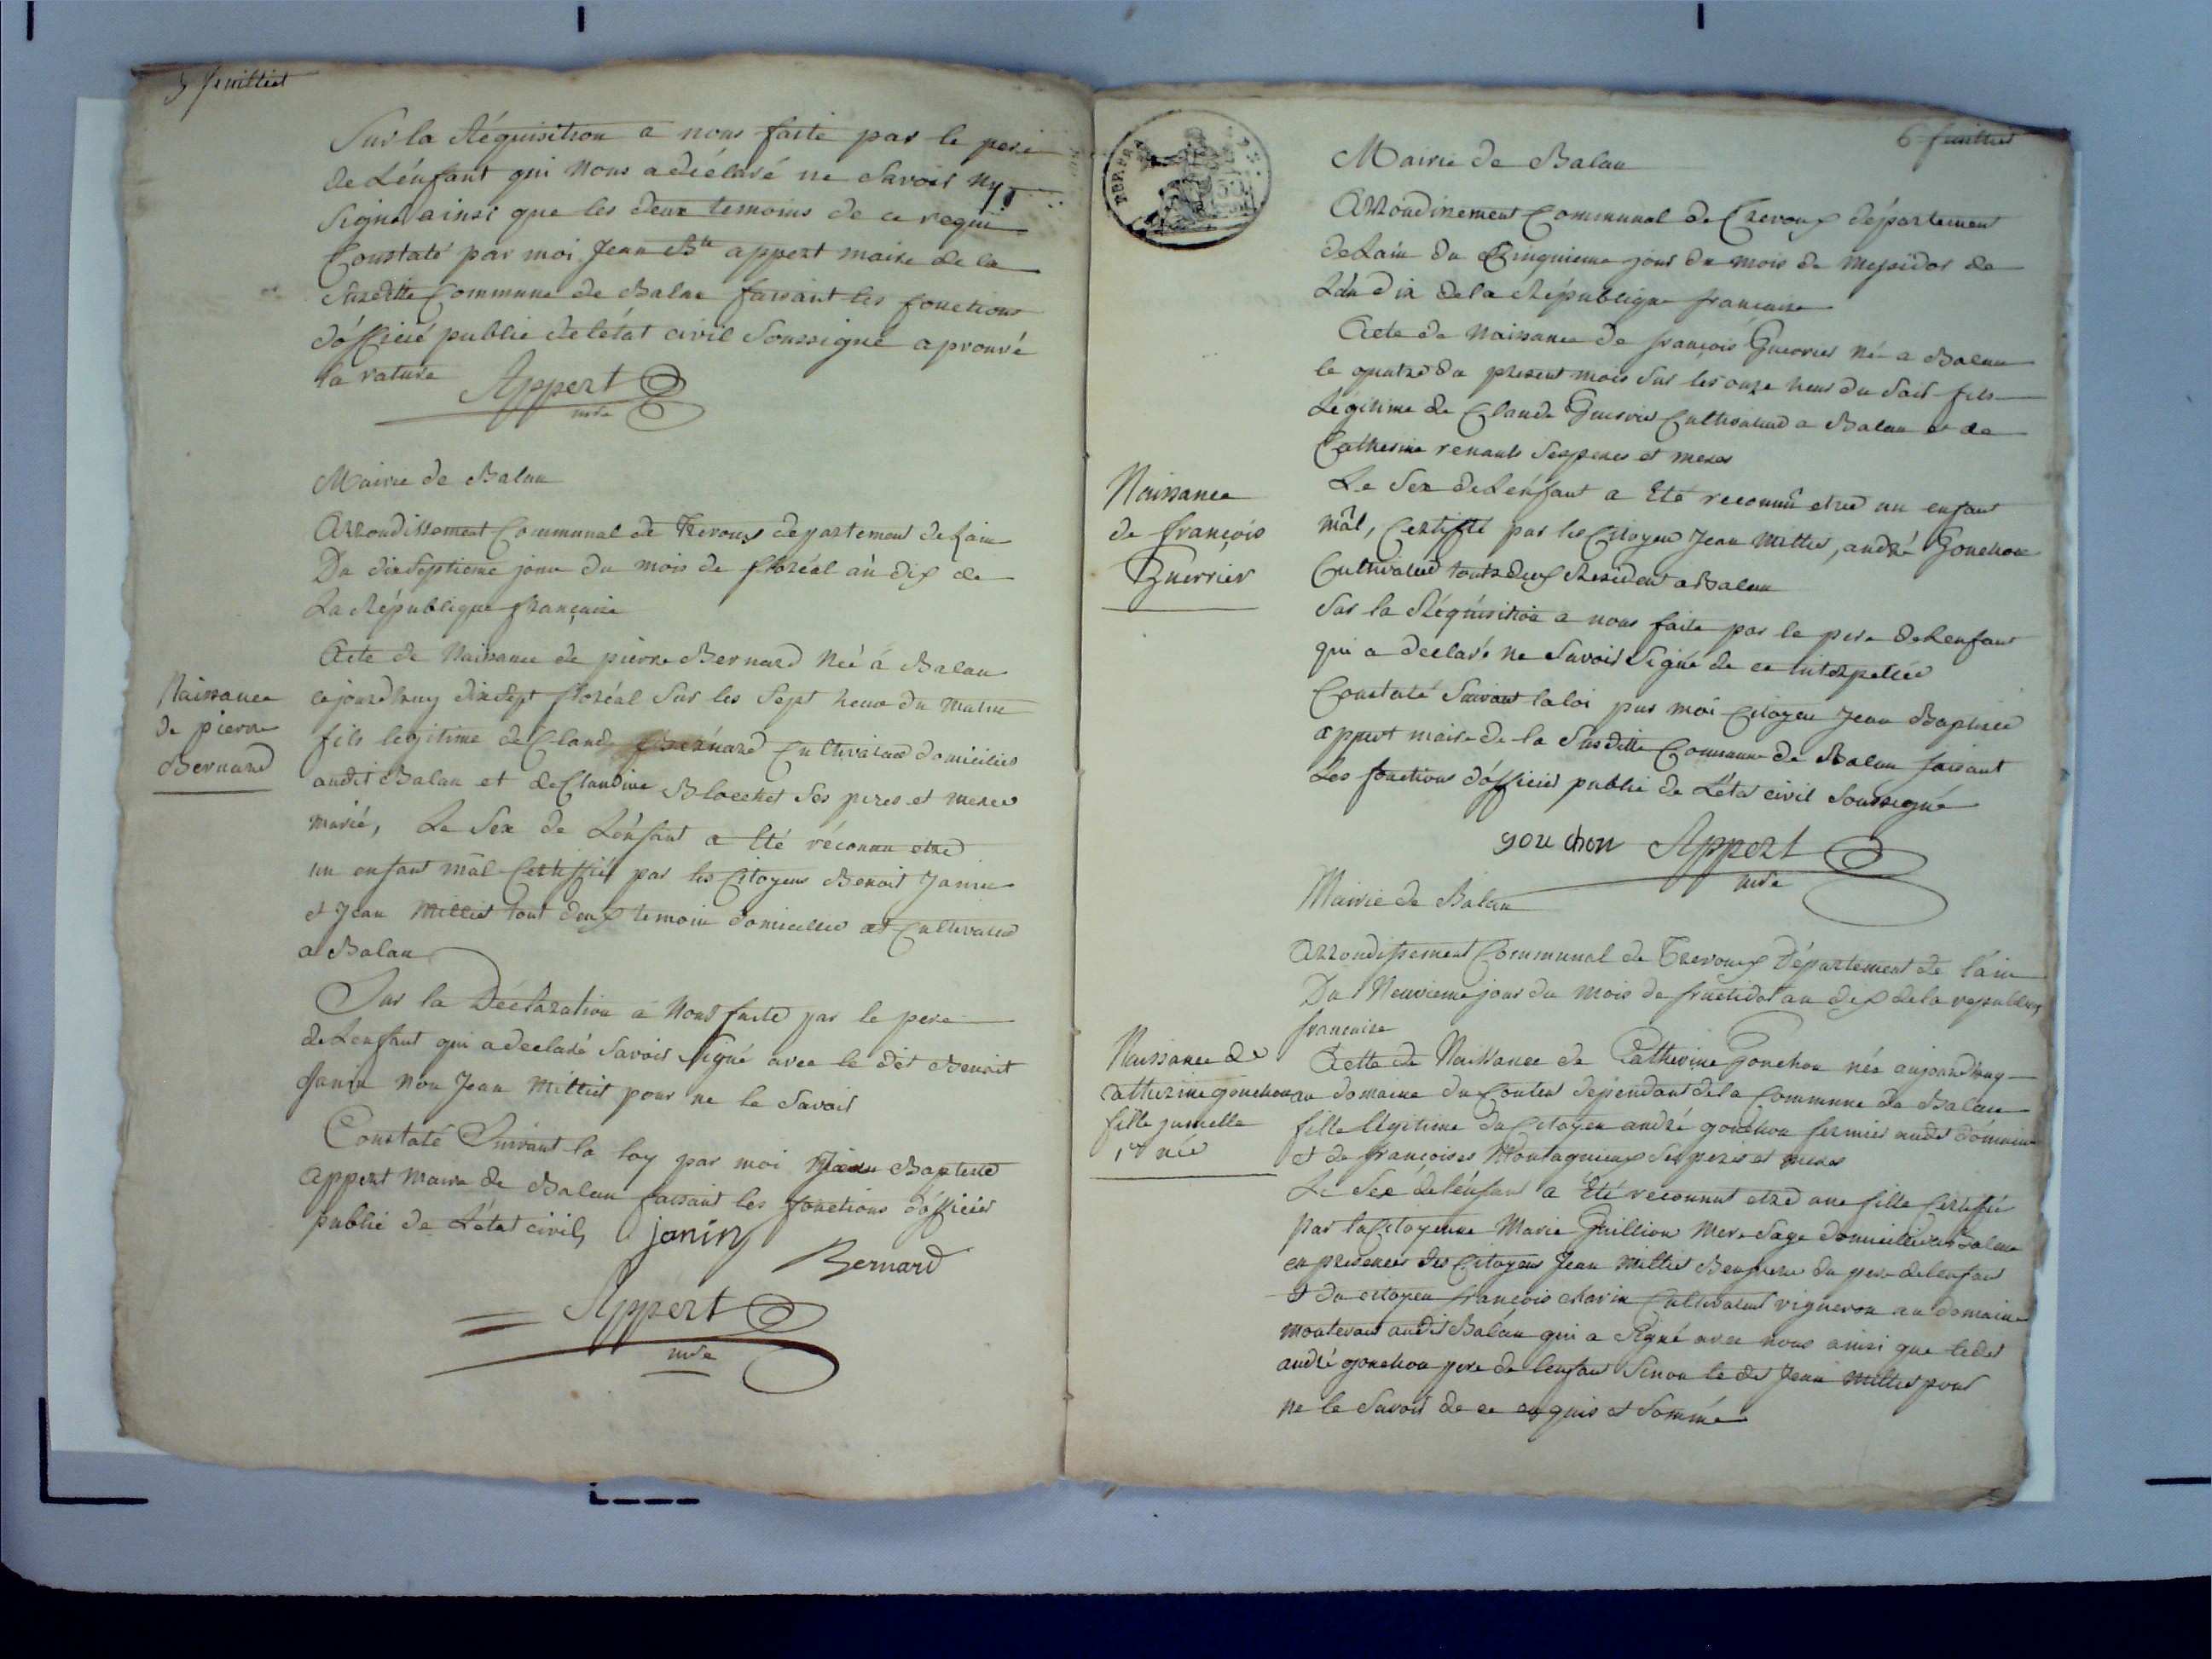 5 feuilliet
Sur la Réquisition a nous faite par le pere
de Lénfant qui Nous a déélaré ne Savoir ny
Signé ainsi que les deux temoins de ce requi
Constaté par moi Jean Bte appert maire de la
Susditte Commune de Balan faisant les fonctions
d'officié public de létat civil Soussigné aprouvé
la rature Appert
mre
Mairie de Balan
Arrondissement Communal de Trevoux departement de Lain
Du dixseptieme jour du mois de floréal an dix de
La République française
Acte de Naissance de pierre Bernard Neé á Balan
Naissance
de pierre
Bernard
cejourdhuy dixsept floréal Sur les Sept heure du Matin
fils legitime de Claude Bernard Cultivateur domicilies
audit Balan et de Claudine Blocchet Ses peres et meres
marié, Le Sex de Lénfant a Eté réconnu etre
un enfant mâl Certiffié par les Citoyens Benoit Janin
et Jean Millet tout deux temoin domicilies et Cultivateur
a Balan
Sur la Déclaration a Nous faite par le pere
de Lenfant qui a declaré Savoir Signé avec le dit Benoit
Janin Non Jean Milliet pour ne le Savoir
Constaté Suivant la loy par moi Jean Baptiste
appert Maire de Balan faisant les fonctions d'officier
public de Létat civil janin
Bernard
Appert
mre
6 feuilliet
REP. FRA
Mairie de Balan
Arrondissement Communal de Trevoux département
de Lain du Cinquieme jour du mois de Messidor de
Lán dix de la République française
Acte de Naissance de françois Guerrier Né a Balan
le quatre du present mois Sur les onze heur du Soir fils
Legitime de Claude Guerrier Cultivateur a Balan et de
Catherine renaud Ses peres et meres
Naissance
de françois
Guerrier
Le Sex de Lénfant a Eté reconnû etre un enfant
mâl, Certiffié par les Citoyen Jean Millet, andré Gouchon
Cultivateur touts deux Resident a Balan
Sur la Réquisition a nous faite par le pere de Lenfant
qui a declaré ne Savoir Signé de ce interpellée
Constaté Suivant la loi par moi Citoyen Jean Baptiste
appert maire de la Susditte Commune de Balan faisant
Les fonctions d'officier public de Létat civil Soussigné
gouchon Appert
mre
Mairie de Balan
Arrondissement Communal de Trevoux Département de láin
Du Neuvieme jour du mois de fructidor an dix de la republiq
française
Naissance de
Catherine gouchon
fille jumelle
1re née
Actte de Naissance de Catherine Gouchon née aujourdhuy
au domaine du Contet dependant de la Commune de Balan
fille légitime du Citoyen andré gouchon fermier audit domaine
et de françoises Montagnieux Ses peres et meres
Le Sex de lénfant a Eté reconnut etre une fille Certifié
par la Citoyenne Marie Guillion Mere Sage domiciliée a Balan
en presences des Citoyens Jean Milliet Beaufrere du pere de lenfant
et du citoyen françois charin Cultivateur vigneron au domaine
montevant audit Balan qui a Signé avec nous ainsi que ledit
andré gouchon pere de lenfant Sinon le dit Jean Milliet pour
ne le Savoir de ce enquis et Sommé